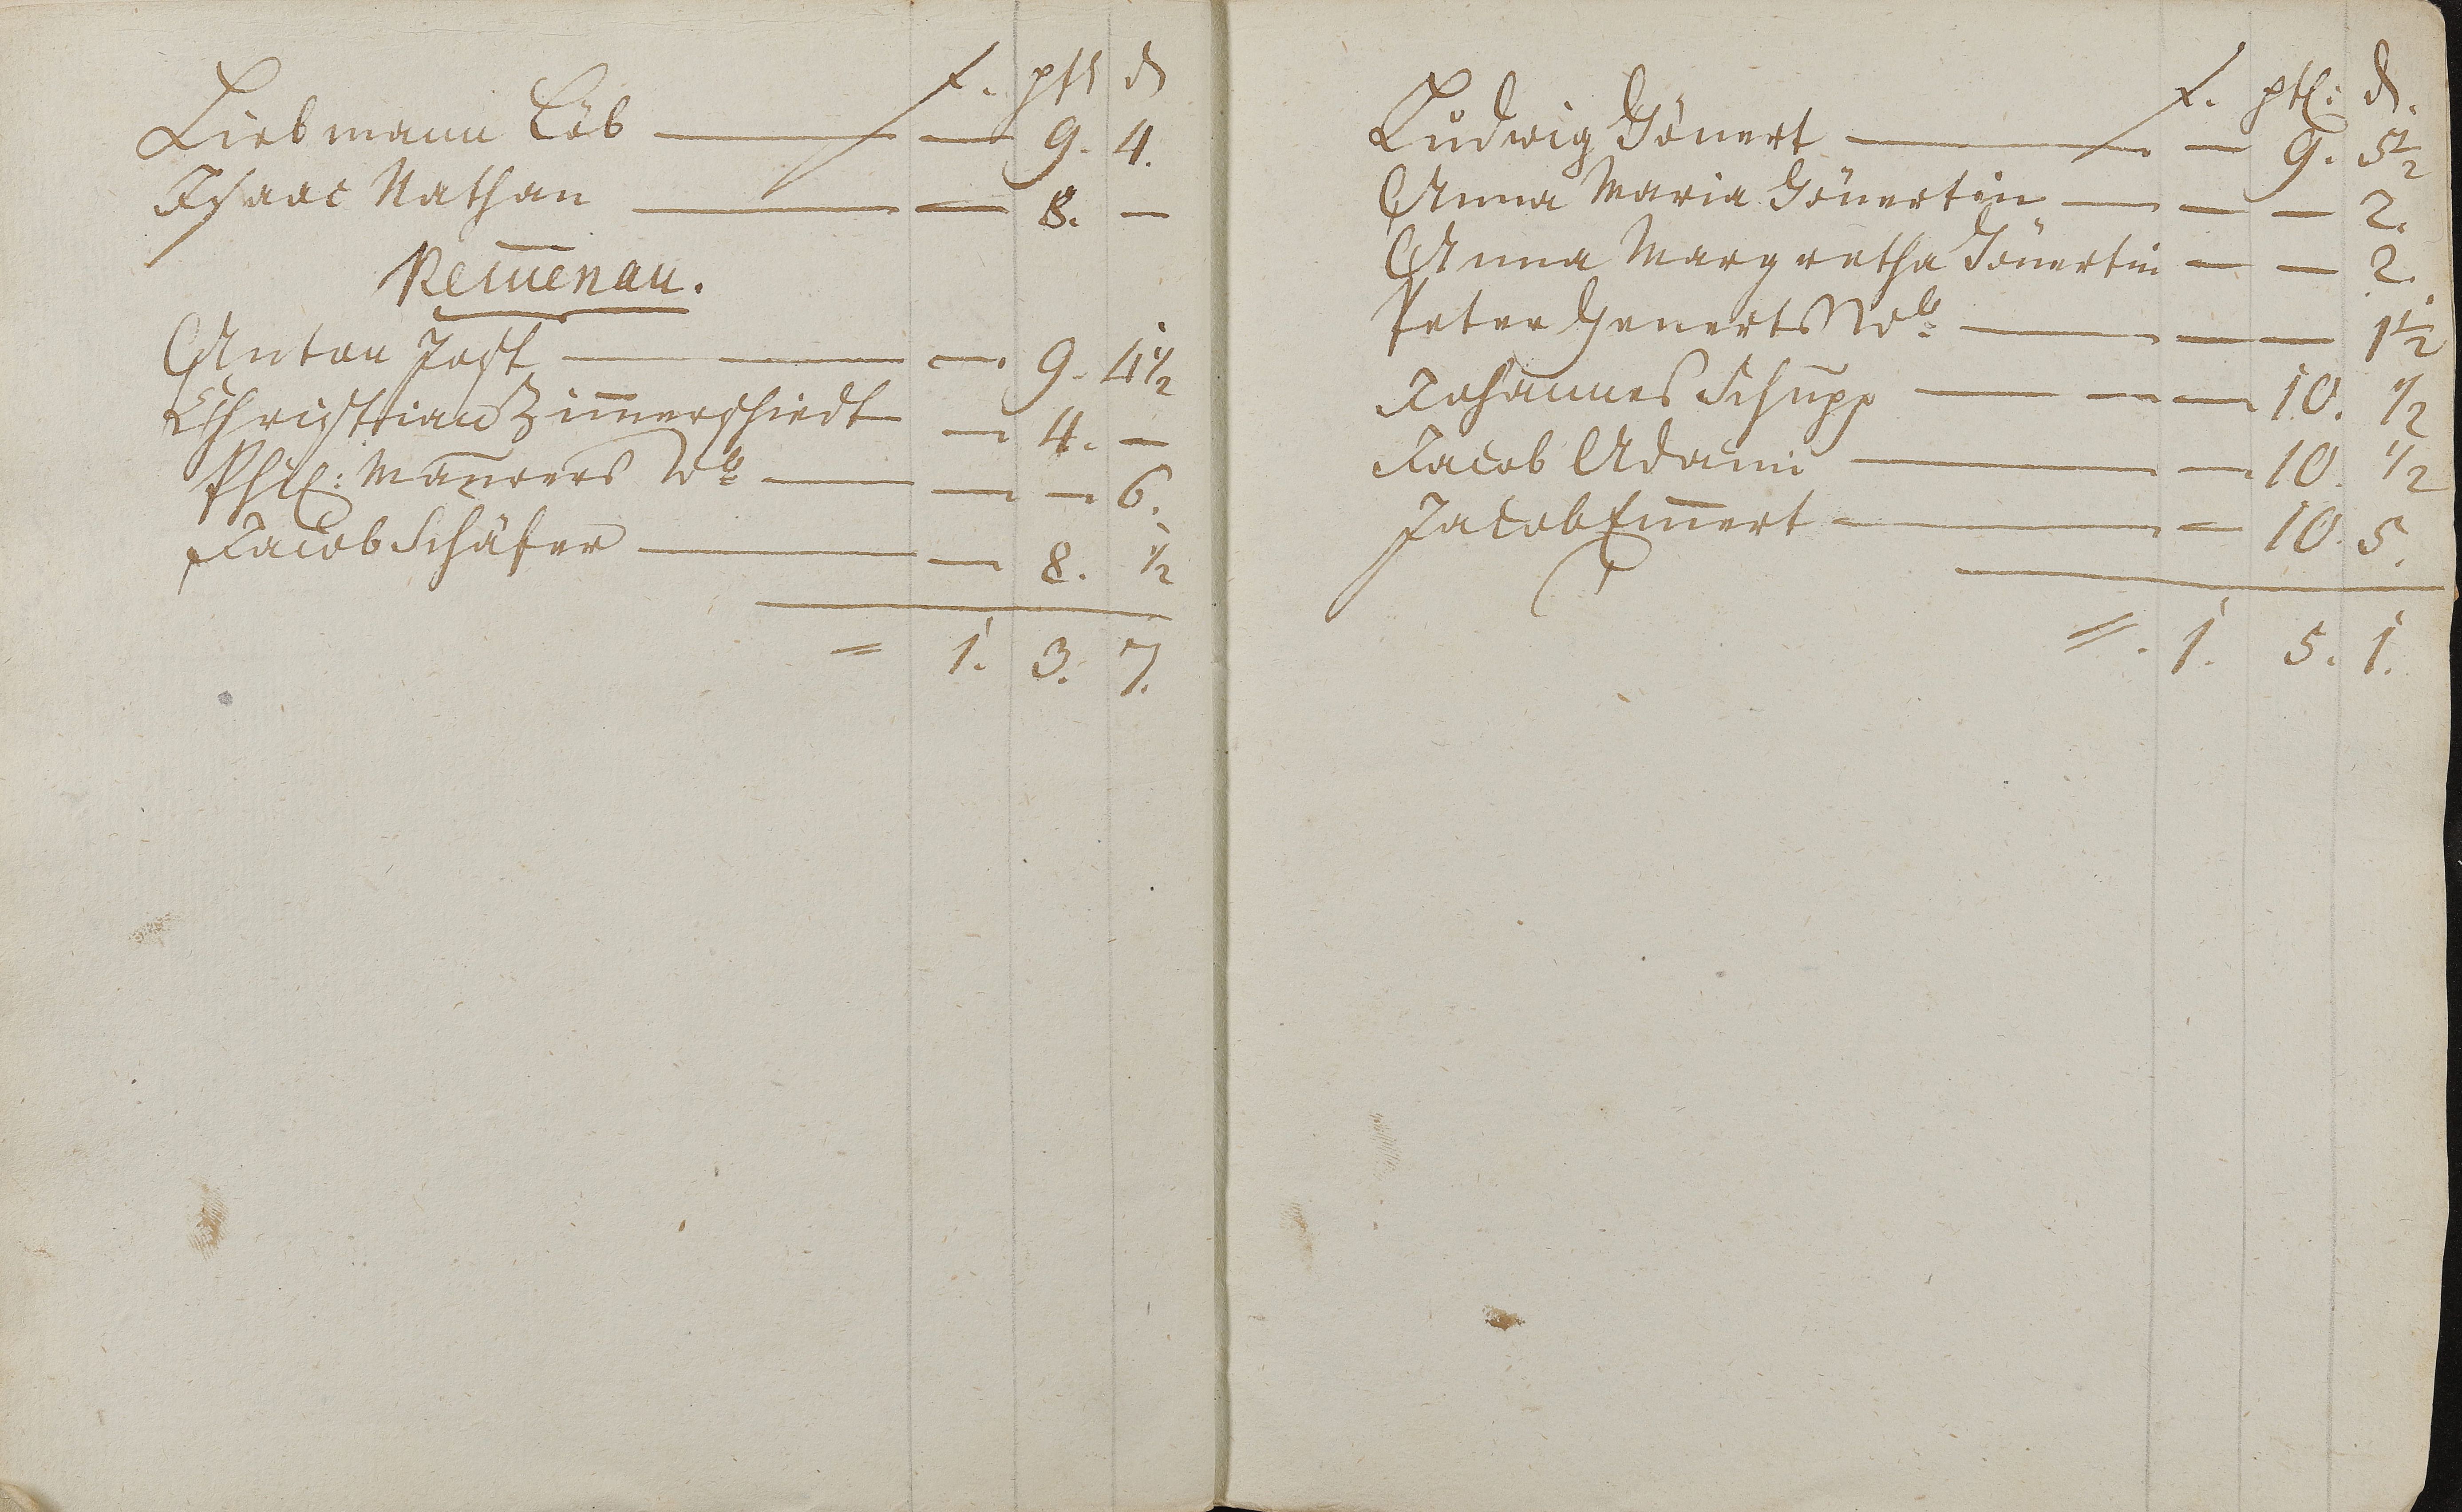 f. ptl d
Liebmann Löb — — 9. 4.
Isaac Nathan — — 8. —
Kem̄enau.
Anton Jost — — 9. 4½
Christian Zim̄erschiedt — 4. —
Phil: Maurers Wb — — — 6.
Jacob Schäfer — — 8. ½
= 1. 3. 7.
f. ptl: d.
Ludwig Gönert — — 9. 5½
Anna Maria Gönertin — — — 2.
Anna Margretha Gönertin — — 2.
Peter Generts Wb: — — — 1½
Johannes Schupp — — — 10. ½
Jacob Adami — — 10. ½
Jacob Em̄ert — — 10. 5.
=. 1. 5. 1.